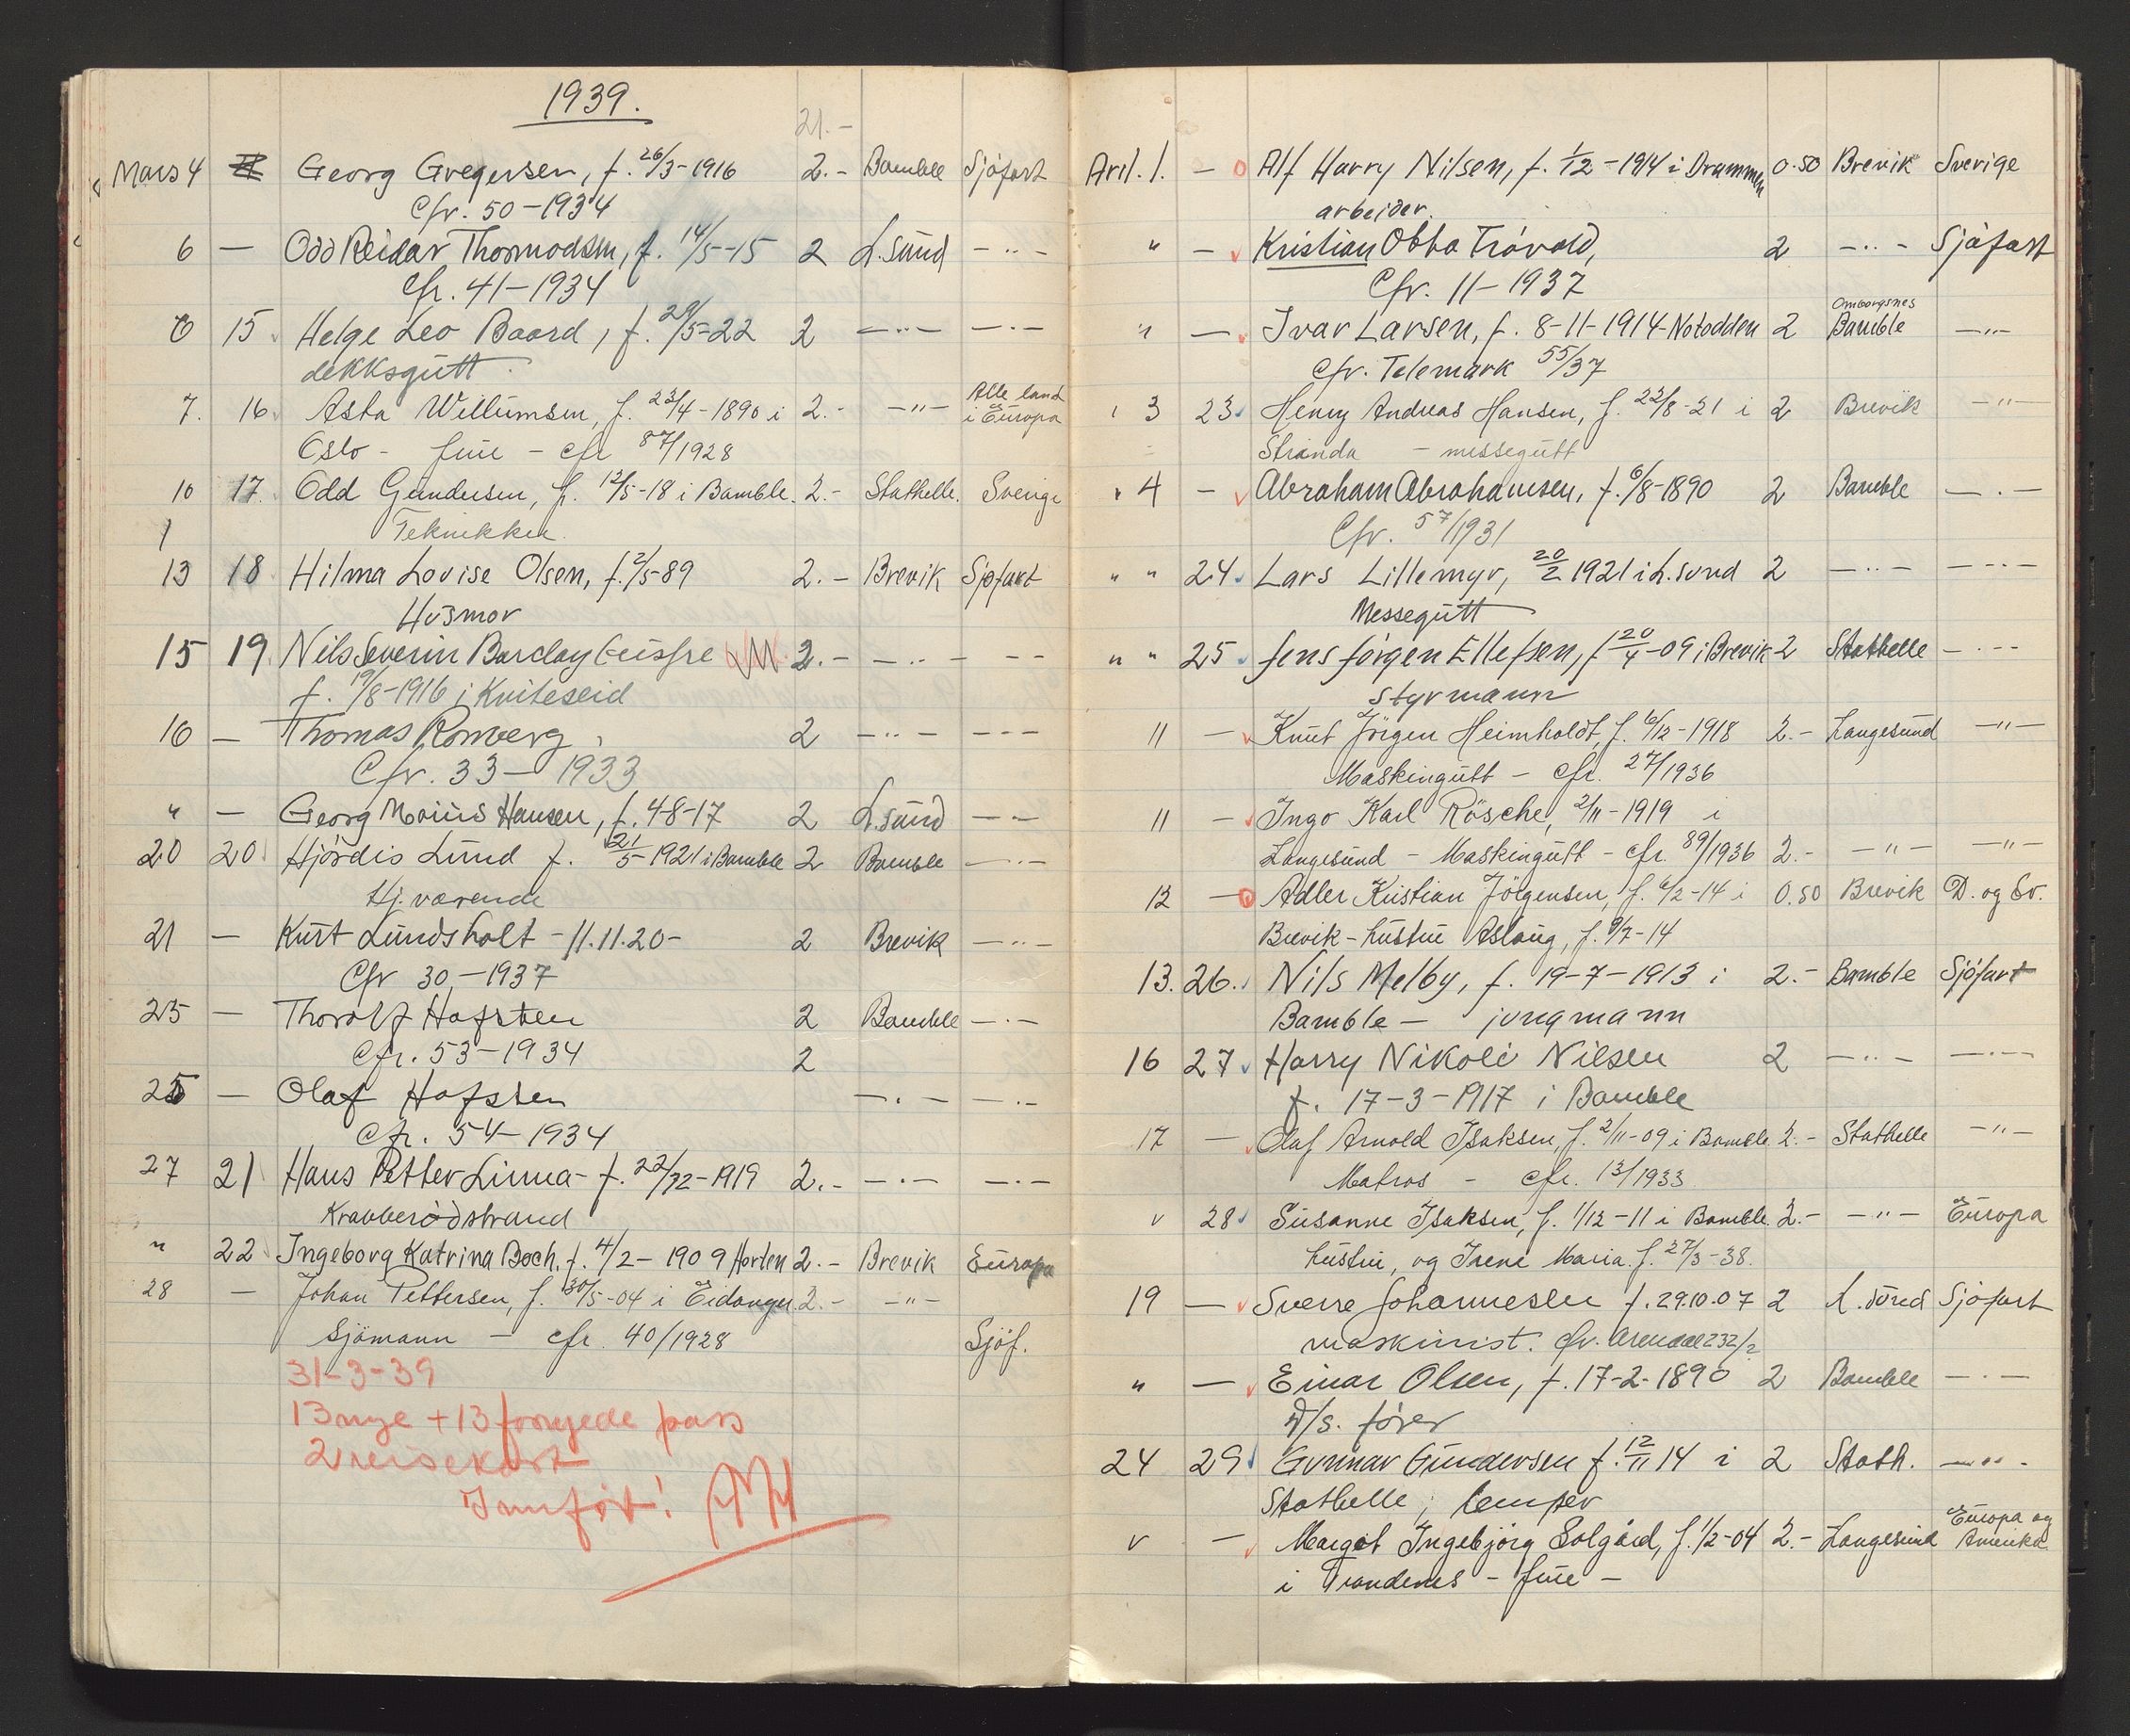 1939.
21.-
Mars 4 Georg Gregersen, f. 26/3-1916 2.- Bamble Sjöfart
Cfr. 50-1934
6 — Odd Reidar Thormodsen, f. 14/5-15 2 L.sund —"—
Cfr. 41-1934
6 15 Helge Leo Baard, f. 29/5-22 2 —"— —"—
dekksgutt.
7. 16 Asta Willumsen, f. 23/4-1890 i 2.- —"— Alle land i Europa
Oslo - frue - cfr 87/1928
10 17. Odd Gundersen, f. 12/5-18 i Bamble. 2.- Stathelle. Sverige
Teknikker
13 18 Hilma Lovise Olsen, f. 2/5-89 2.- Brevik Sjøfart
Husmor
15 19. Nils Severin Barclay 2.- —"— —"—
f. 19/8-1916 i Kviteseid
16 — Thomas Romberg, 2 —"— —"—
Cfr. 33-1933
" — Georg Marius Hansen, f. 4-8-17 2 L.sund —"—
20 20 Hjördis Lund f. 21/5-1921 i Bamble 2 Bamble —"—
Hj. værende
21 — Kurt Lundsholt -11.11.20- 2 Brevik —"—
Cfr 30-1937
25 — Thorolf Hafsten 2 Bamble —"—
Cfr. 53-1934 2
25 — Olaf Hafsten —"— —"—
Cfr. 54-1934
27 21 Hans Petter Linna - f. 22/12-1919 2.- —"— —"—
Krabberødstrand
" 22 Ingeborg Katrina Boch, f. 4/2-1909 Horten 2.- Brevik Europa
28 — Johan Pettersen, f. 30/5-04 i Eidanger 2.- —"—
Sjömann - cfr. 40/1928 Sjöf.
31-3-39
13 nye + 13 fornyede pass
2 reisekort
Jamført!
Aril. 1. — Alf Harry Nilsen, f. 1/12-1914 i Drammen 0.50 Brevik Sverige
arbeider.
" — Kristian Otto Trövold, 2 —"— Sjöfart
Cfr. 11-1937
" — Ivar Larsen, f. 8-11-1914-Notodden 2 Omborgsnes Bamble —"—
Cfr. Telemark 55/37
3 23 Henry Andreas Hansen, f. 22/8-21 i 2 Brevik —"—
Stranda - messegutt
4 — Abraham Abrahamsen, f. 6/8-1890 2 Bamble —"—
Cfr. 57/1931
" " 24 Lars Lillemyr, 20/2 1921 i L.sund 2 —"— —"—
Messegutt
" " 25 Jens Jörgen Ellefsen, f 20/4-09 i Brevik 2 Stathelle —"—
Styrmann
11 — Knut Jörgen Heimholdt, f. 6/12-1918 2.- Langesund —"—
Maskingutt - cfr. 27/1936
11 — Ingo Karl Rösche, 2/11-1919 i
Langesund - Maskingutt - cfr. 89/1936 2.- —"— —"—
12 — Adler Kristian Jörgensen, f. 6/2-14 i 0.50 Brevik D. og Sv.
Brevik - hustru Aslaug, f. 9/7-14
13. 26. Nils Melby, f. 19-7-1913 i 2.- Bamble Sjöfart
Bamble - jungmann
16 27 Harry Nikoli Nilsen 2 —"— —"—
f. 17-3-1917 i Bamble
17 — Olaf Arnold Isaksen, f. 2/11-09 i Bamble 2.- Stathelle —"—
Matros - cfr. 13/1933
v 28 Susanne Isaksen, f. 1/12-11 i Bamble. 2.- —"— Europa
hustru, og Irene Maria. f. 27/3-38.
19 — Sverre Johannesen f. 29.10.07 2 L.sund Sjöfart
maskinist. cfr. Arendal 232/?
" — Einar Olsen, f. 17-2-1890 2 Bamble —"—
D/S. förer
24 29 Gunnar Gundersen f. 12/11 14 i 2 Stath. —"—
Stathelle, lemper
v — Margot Ingebjörg Solgård, f. 1/2-04 2.- Langesund Europa og Amerika
i Trondenes - frue -